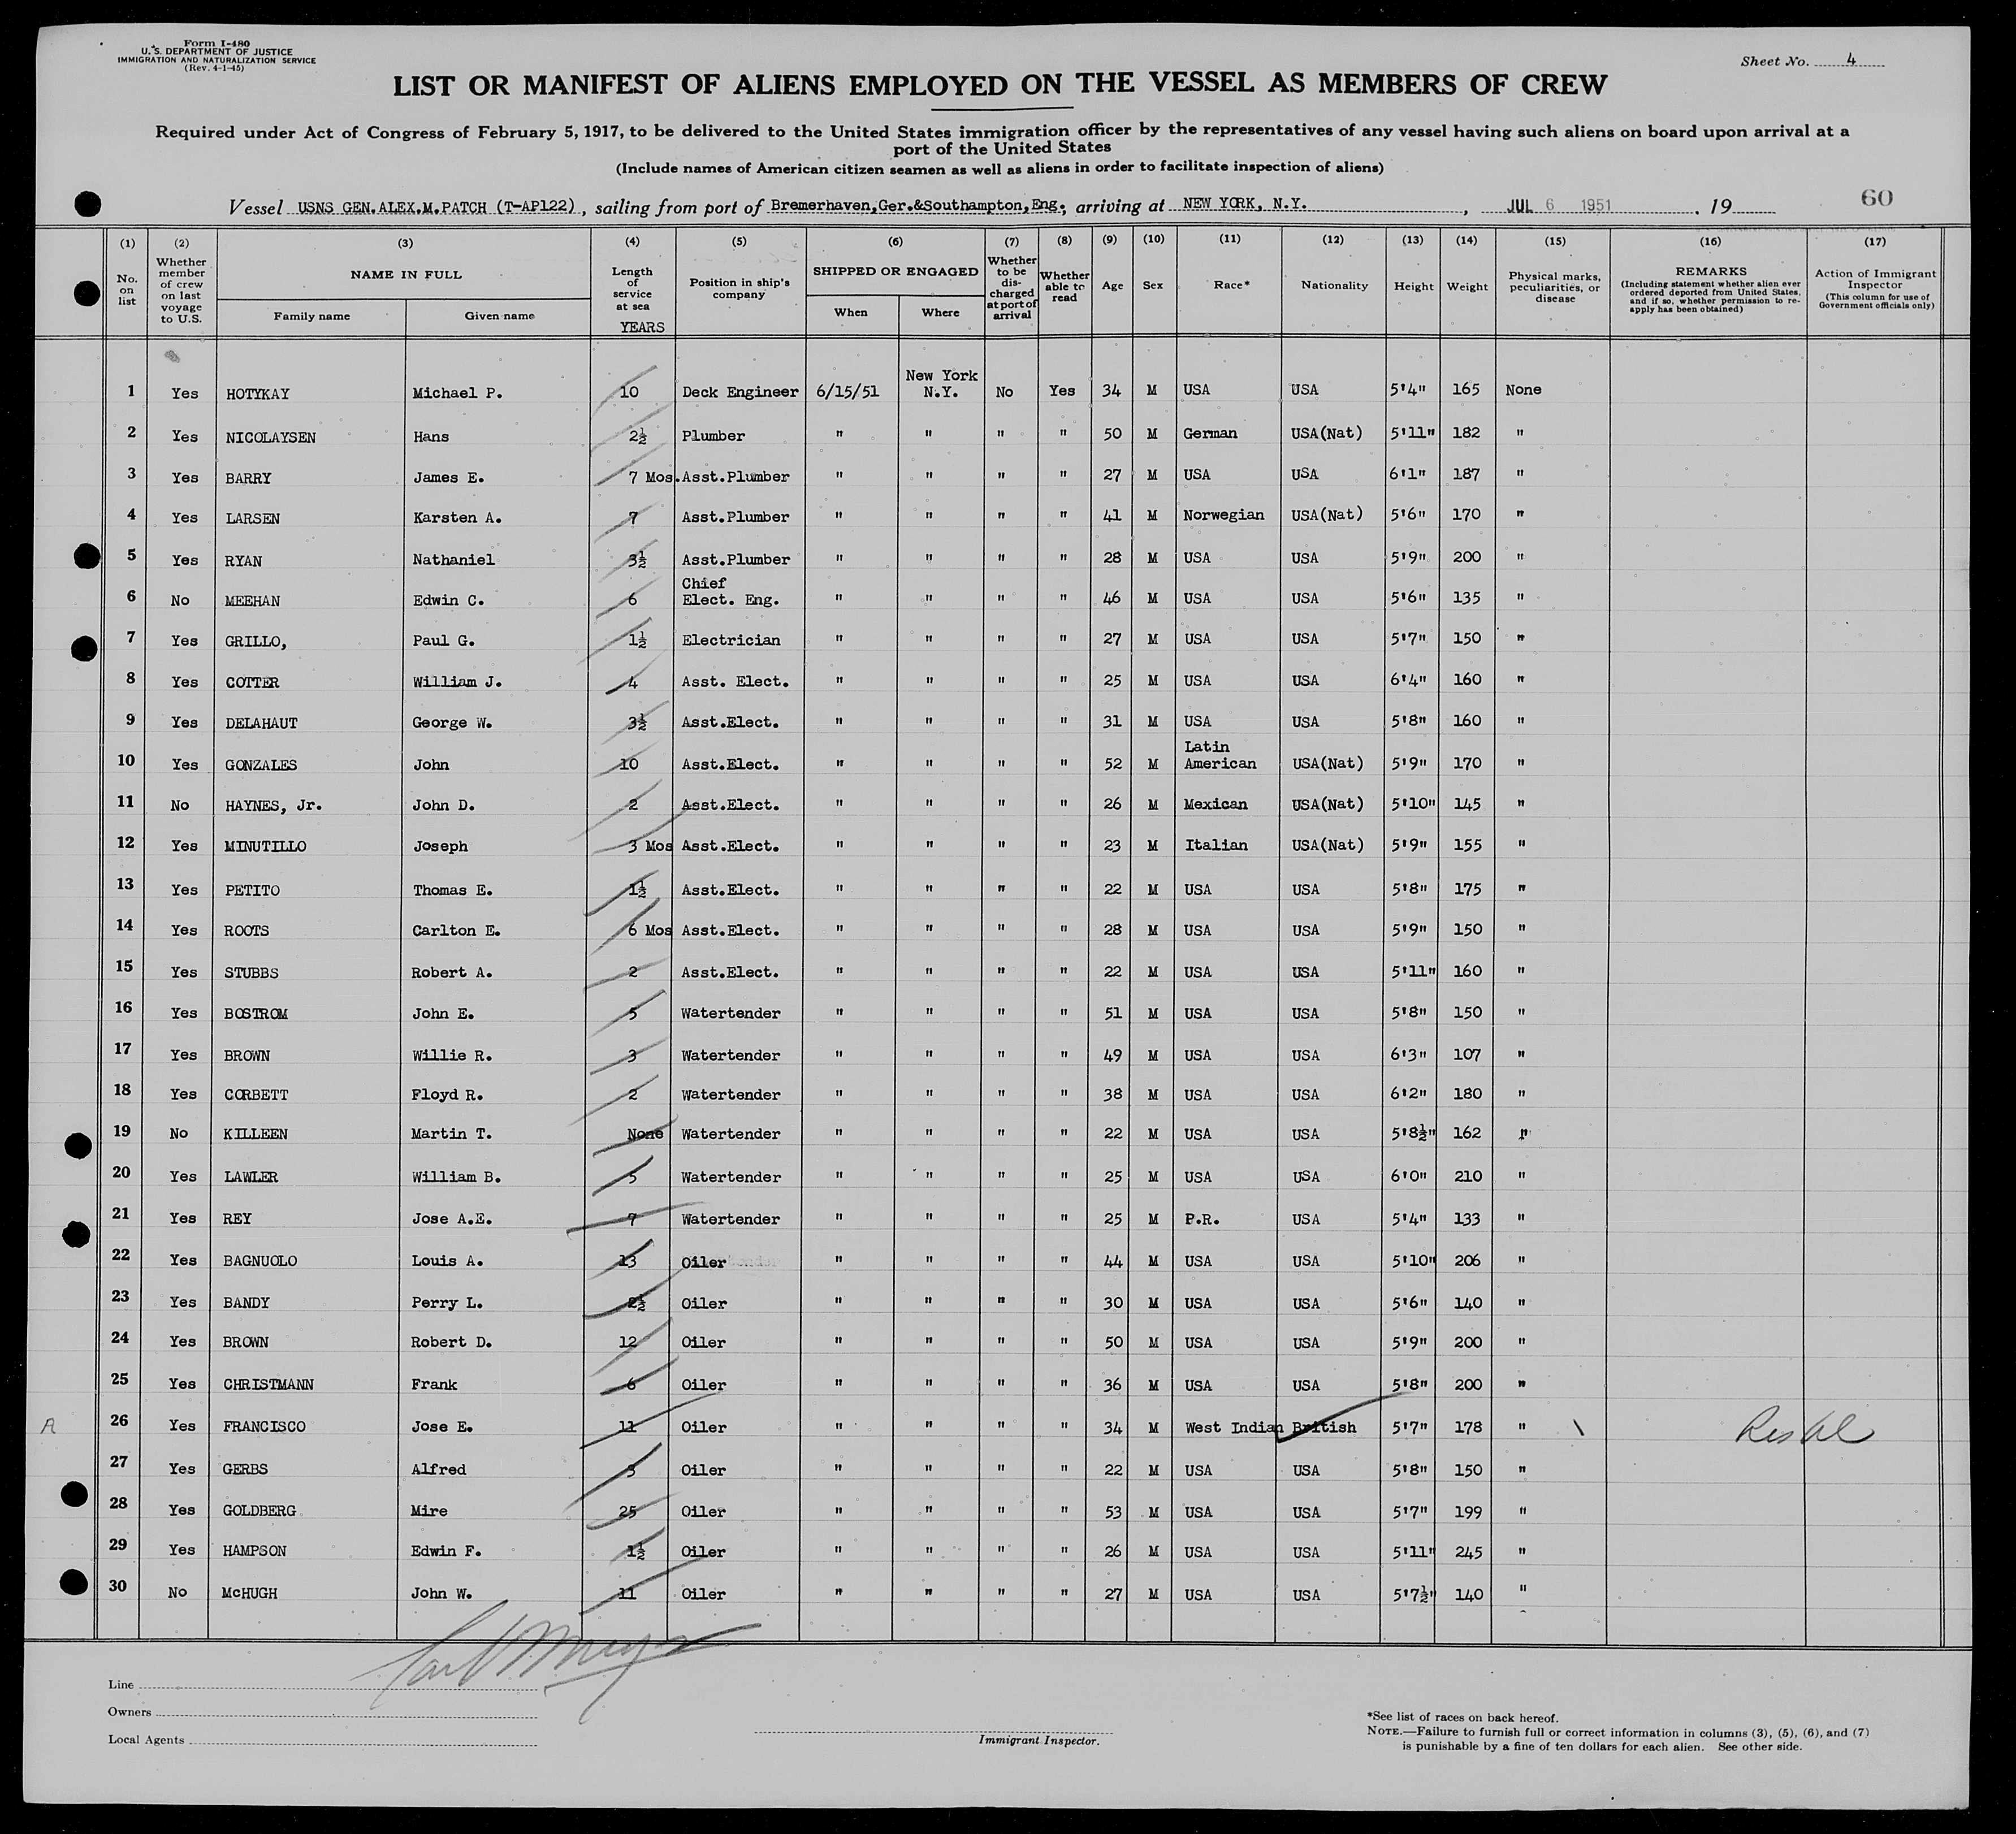 Form I-480
U. S. DEPARTMENT OF JUSTICE
IMMIGRATION AND NATURALIZATION SERVICE
(Rev. 4-1-45)
Sheet No. 4
LIST OR MANIFEST OF ALIENS EMPLOYED ON THE VESSEL AS MEMBERS OF CREW
Required under Act of Congress of February 5, 1917, to be delivered to the United States immigration officer by the representatives of any vessel having such aliens on board upon arrival at a
port of the United States
(Include names of American citizen seamen as well as aliens in order to facilitate inspection of aliens)
Vessel USNS GEN.ALEX.M.PATCH (T-AP122), sailing from port of Bremerhaven,Ger.&Southampton,Eng., arriving at NEW YORK, N.Y., JUL 6 1951, 19
60
(1) No. on list
(2) Whether member of crew on last voyage to U.S.
(3) NAME IN FULL
Family name
Given name
(4) Length of service at sea YEARS
(5) Position in ship's company
(6) SHIPPED OR ENGAGED
When
Where
(7) Whether to be discharged at port of arrival
(8) Whether able to read
(9) Age
(10) Sex
(11) Race*
(12) Nationality
(13) Height
(14) Weight
(15) Physical marks, peculiarities, or disease
(16) REMARKS (Including statement whether alien ever ordered deported from United States, and if so, whether permission to re-apply has been obtained)
(17) Action of Immigrant Inspector (This column for use of Government officials only)
1 Yes HOTYKAY Michael P. 10 Deck Engineer 6/15/51 New York N.Y. No Yes 34 M USA USA 5'4" 165 None
2 Yes NICOLAYSEN Hans 2½ Plumber " " " " 50 M German USA(Nat) 5'11" 182 "
3 Yes BARRY James E. 7 Mos. Asst.Plumber " " " " 27 M USA USA 6'1" 187 "
4 Yes LARSEN Karsten A. 7 Asst.Plumber " " " " 41 M Norwegian USA(Nat) 5'6" 170 "
5 Yes RYAN Nathaniel 3½ Asst.Plumber " " " " 28 M USA USA 5'9" 200 "
6 No MEEHAN Edwin C. 6 Chief Elect. Eng. " " " " 46 M USA USA 5'6" 135 "
7 Yes GRILLO, Paul G. 1½ Electrician " " " " 27 M USA USA 5'7" 150 "
8 Yes COTTER William J. 4 Asst. Elect. " " " " 25 M USA USA 6'4" 160 "
9 Yes DELAHAUT George W. 3½ Asst.Elect. " " " " 31 M USA USA 5'8" 160 "
10 Yes GONZALES John 10 Asst.Elect. " " " " 52 M Latin American USA(Nat) 5'9" 170 "
11 No HAYNES, Jr. John D. 2 Asst.Elect. " " " " 26 M Mexican USA(Nat) 5'10" 145 "
12 Yes MINUTILLO Joseph 3 Mos Asst.Elect. " " " " 23 M Italian USA(Nat) 5'9" 155 "
13 Yes PETITO Thomas E. 1½ Asst.Elect. " " " " 22 M USA USA 5'8" 175 "
14 Yes ROOTS Carlton E. 6 Mos Asst.Elect. " " " " 28 M USA USA 5'9" 150 "
15 Yes STUBBS Robert A. 2 Asst.Elect. " " " " 22 M USA USA 5'11" 160 "
16 Yes BOSTROM John E. 5 Watertender " " " " 51 M USA USA 5'8" 150 "
17 Yes BROWN Willie R. 3 Watertender " " " " 49 M USA USA 6'3" 107 "
18 Yes CORBETT Floyd R. 2 Watertender " " " " 38 M USA USA 6'2" 180 "
19 No KILLEEN Martin T. None Watertender " " " " 22 M USA USA 5'8½" 162 "
20 Yes LAWLER William B. 5 Watertender " " " " 25 M USA USA 6'0" 210 "
21 Yes REY Jose A.E. 7 Watertender " " " " 25 M P.R. USA 5'4" 133 "
22 Yes BAGNUOLO Louis A. 13 Oiler " " " " 44 M USA USA 5'10" 206 "
23 Yes BANDY Perry L. 2½ Oiler " " " " 30 M USA USA 5'6" 140 "
24 Yes BROWN Robert D. 12 Oiler " " " " 50 M USA USA 5'9" 200 "
25 Yes CHRISTMANN Frank 6 Oiler " " " " 36 M USA USA 5'8" 200 "
A 26 Yes FRANCISCO Jose E. 11 Oiler " " " " 34 M West Indian British 5'7" 178 "
27 Yes GERBS Alfred 3 Oiler " " " " 22 M USA USA 5'8" 150 "
28 Yes GOLDBERG Mire 25 Oiler " " " " 53 M USA USA 5'7" 199 "
29 Yes HAMPSON Edwin F. 1½ Oiler " " " " 26 M USA USA 5'11" 245 "
30 No McHUGH John W. 11 Oiler " " " " 27 M USA USA 5'7½" 140 "
Line
Owners
Local Agents
Immigrant Inspector.
*See list of races on back hereof.
NOTE.—Failure to furnish full or correct information in columns (3), (5), (6), and (7)
is punishable by a fine of ten dollars for each alien. See other side.